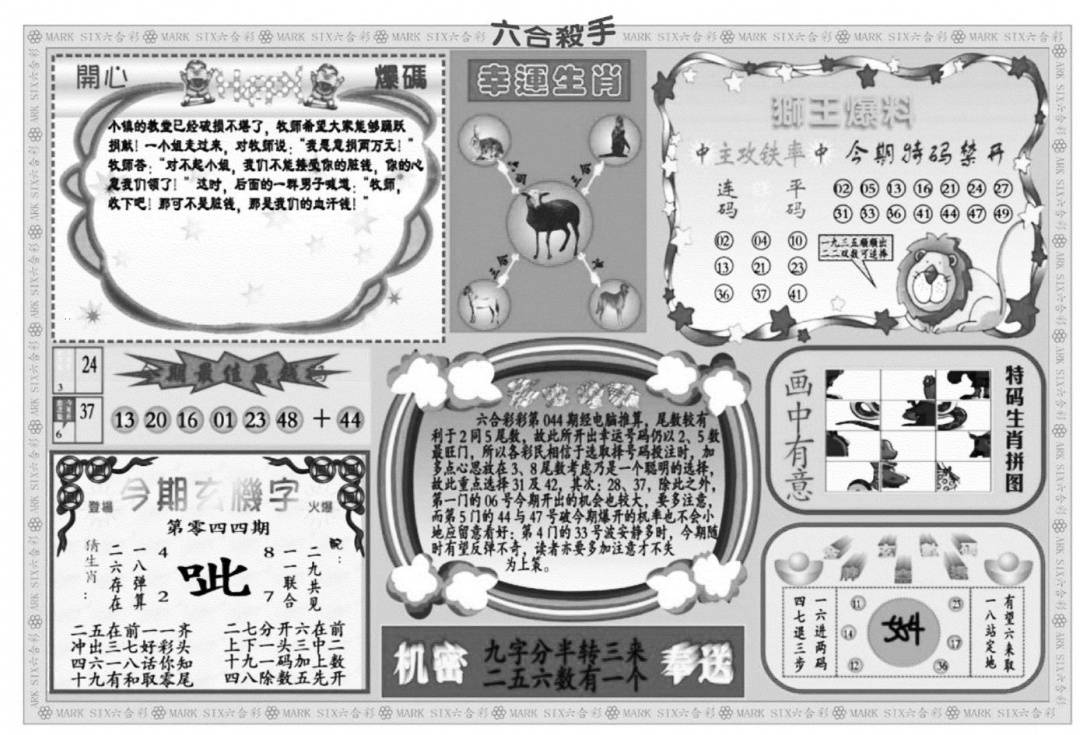 六合殺手
MARK SIX六合彩
開心
爆碼
小镇的教堂已经破损不堪了，牧师希望大家能够踊跃
捐献！一个姐走过来，对牧师说：“我愿意捐两万元！”
牧师答：“对不起小姐，我们不能接受你的脏钱，你的心
意我们领了！”这时，后面的一群男子喊道：“牧师，
收下吧！那可不是脏钱，那是我们的血汗钱！”
幸運生肖
獅王爆料
中主攻铁率中
今期特码禁开
连码
平码
02 04 10
13 21 23
36 37 41
02 05 13 16 21 24 27
31 33 36 41 44 47 49
一九三五顺顺出
二二双数可选择
24
3
37
6
13 20 16 01 23 48 + 44
登場
今期玄機字
火爆
第零四四期
猜生肖：
二六存在
一八弹算
4
2
呲
8
7
一一联合
二九共见
二五在前一一齐
冲出三七好彩头
四六一八话你知
十九有和取零尾
二七分开六在前
上下一头三中二
十九一码加上数
四八除数五先开
六合彩彩第044期经电脑推算，尾数较有
利于2同5尾数，故此所开出幸运号码仍以2、5数
最旺门，所以各彩民相信于选取择号码投注时，加
多点心思放在3、8尾数考虑乃是一个聪明的选择，
故此重点选择31及42，其次：28、37，除此之外，
第一门的06号今期开出的机会也较大，要多注意，
而第5门的44与47号破今期爆开的机率也不会小
地应留意看好：第4门的33号波安静多时，今期随
时有望反弹不奇，读者亦要多加注意才不失
为上策。
机密
九字分半转三来
二五六数有一个
奉送
画中有意
特码生肖拼图
四七退三步
一六进两码
11
14
12
25
17
36
一八站定地
有望六来取